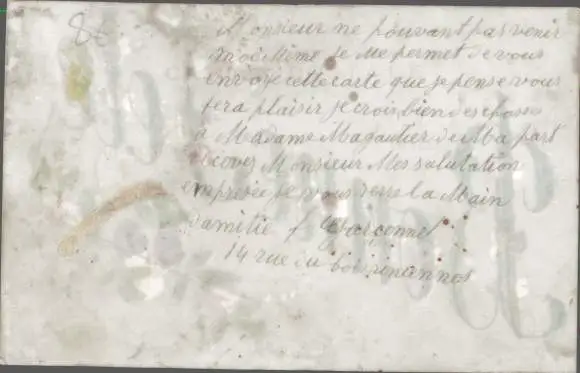 8
Monsieur ne pouvant pas venir
moi Même Je Me permet de vous
envoyé cette carte que je pense vous
fera plaisir je crois bien des chosse
à Madame Magautier de Ma part
recever Monsieur Mes salutation
empresée je vous serre la Main
damitié
14 rue du bois